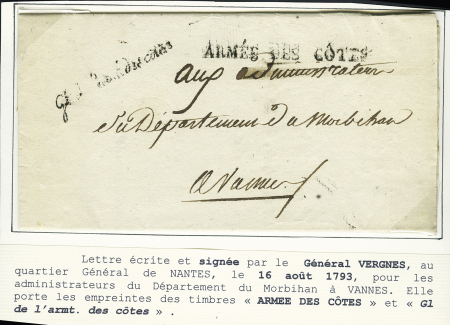 Gl de l'armt. des côtes
ARMÉE DES CÔTES
aux administrateurs
du Département du Morbihan
a Vannes
Lettre écrite et signée par le Général VERGNES, au
quartier Général de NANTES, le 16 août 1793, pour les
administrateurs du Département du Morbihan à VANNES. Elle
porte les empreintes des timbres « ARMEE DES CÔTES » et « Gl
de l'armt. des côtes » .